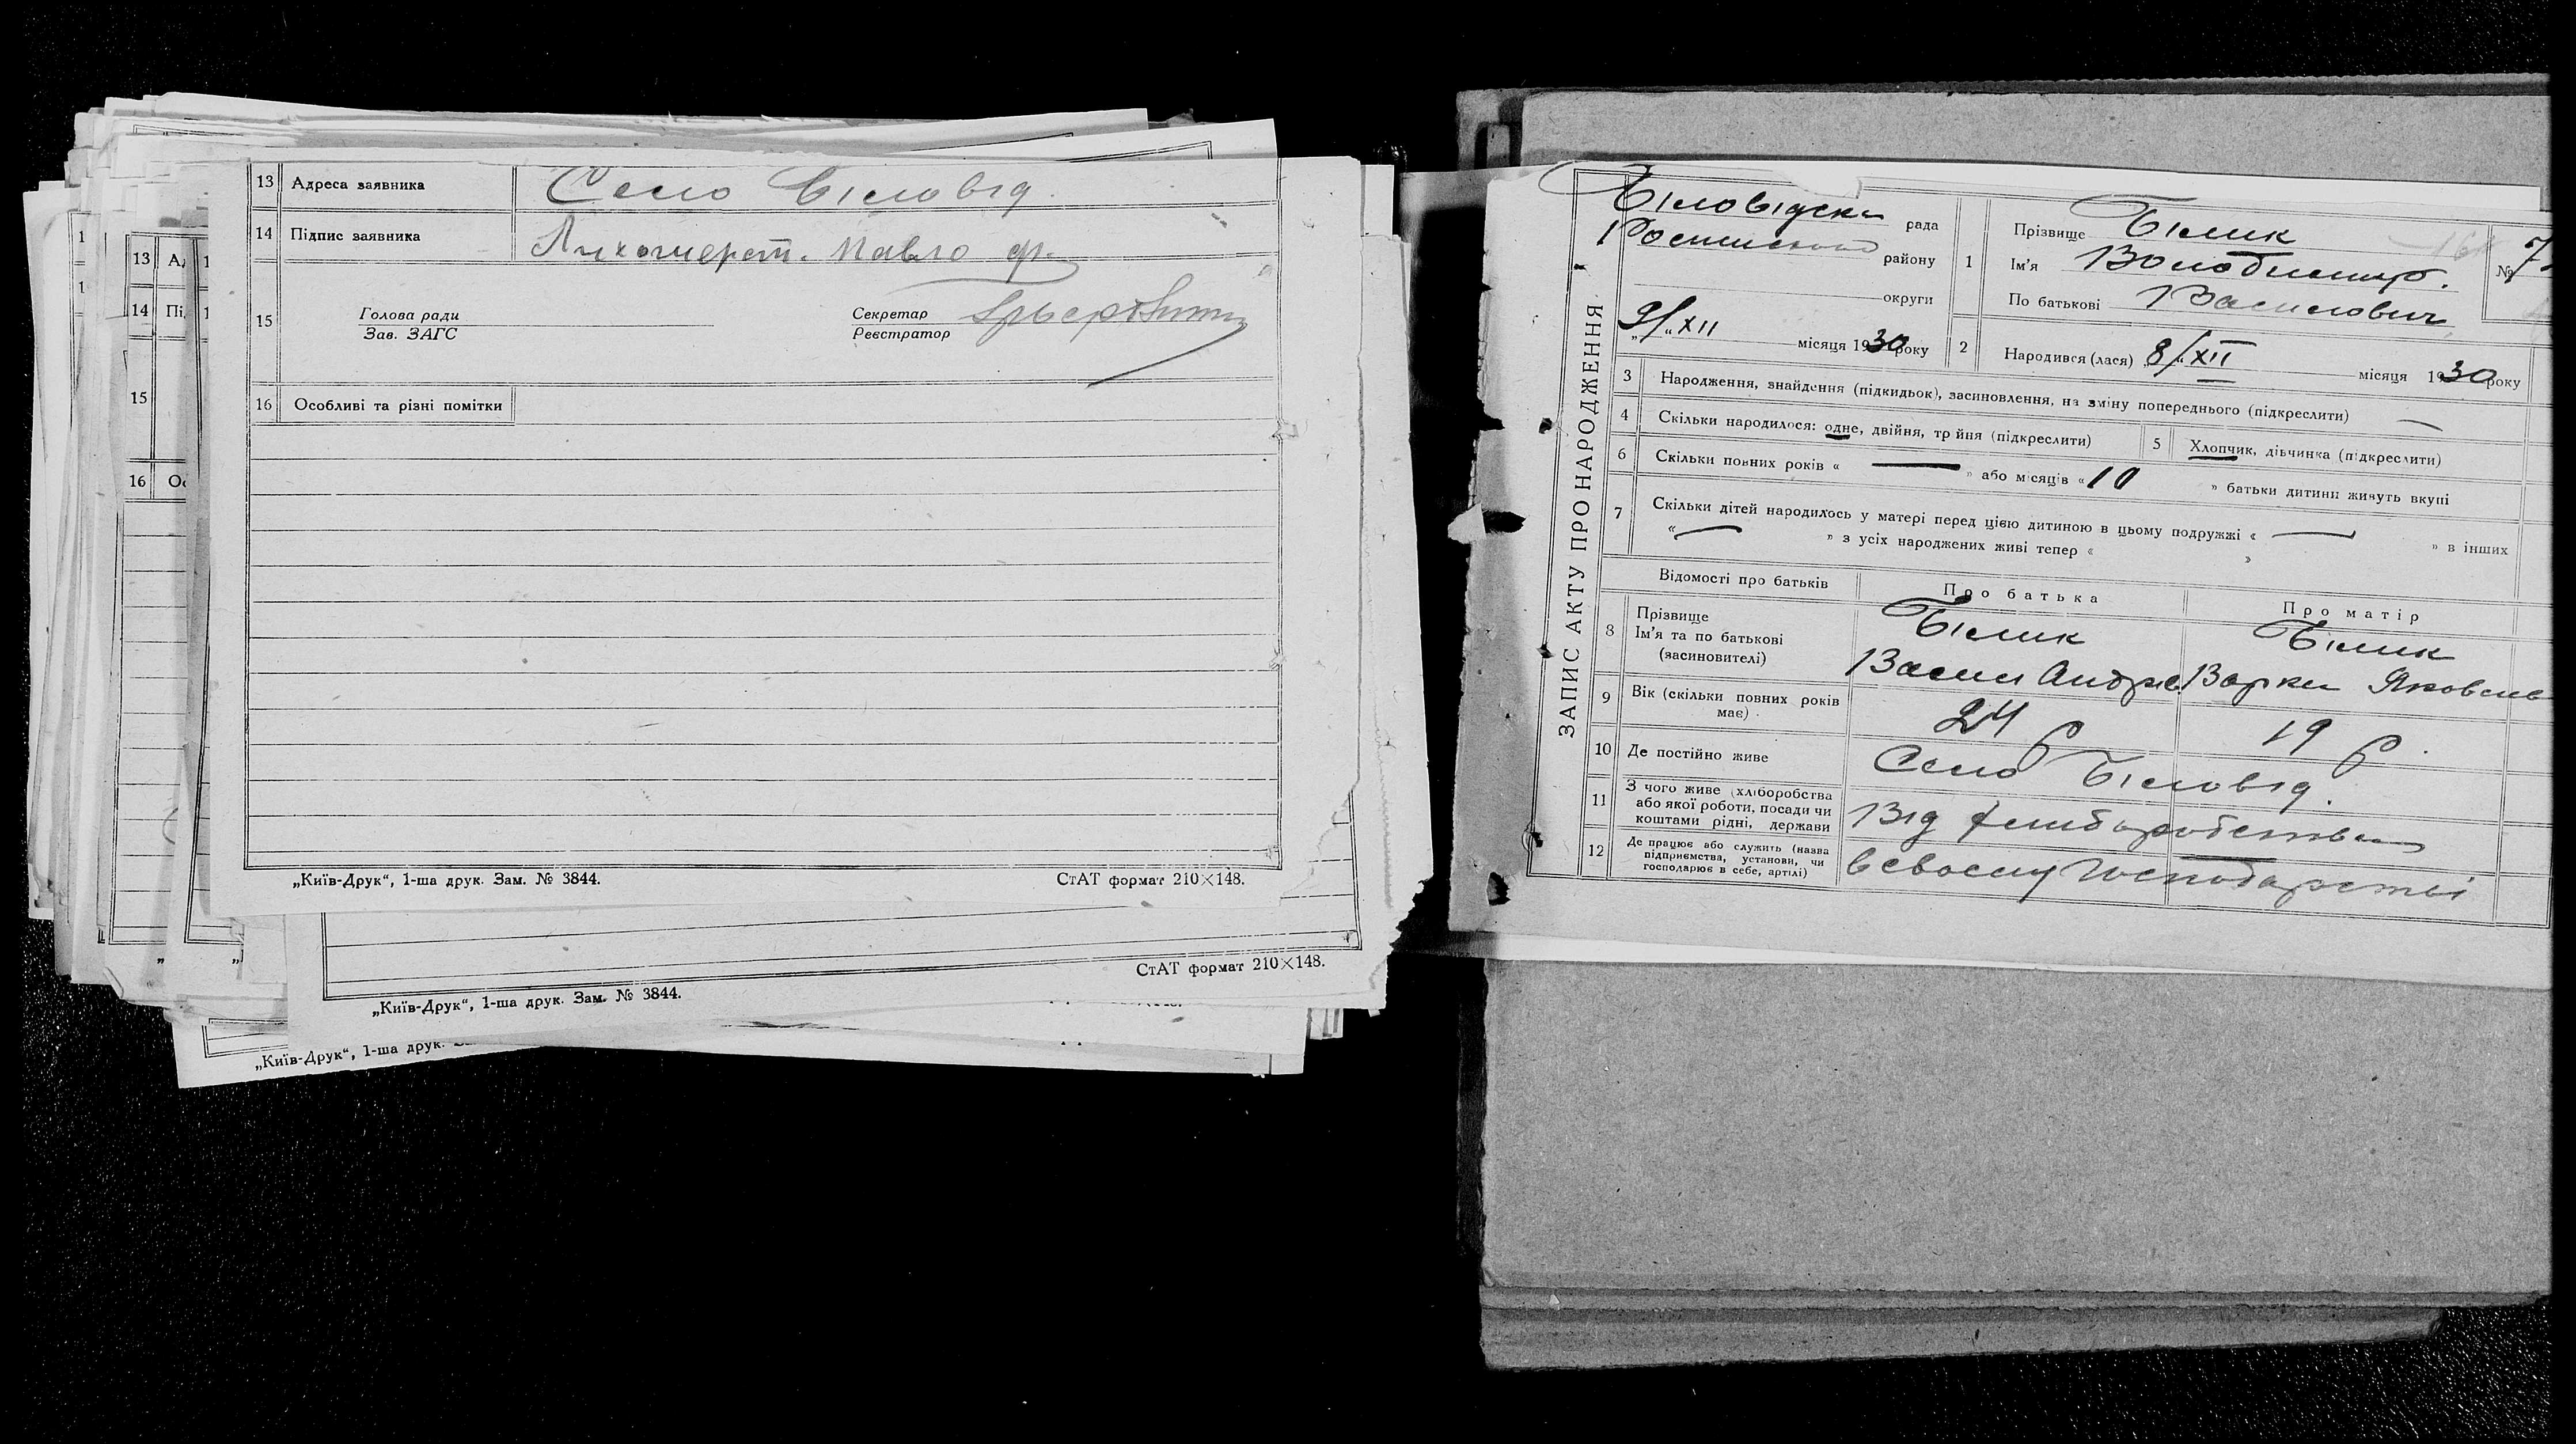 13 Адреса заявника Село Біловід.
14 Підпис заявника Лихошерст. Павло Ф.
15 Голова ради
Зав. ЗАГС
Секретар
Реєстратор
16 Особливі та різні помітки
„Київ-Друк“, 1-ша друк. Зам. № 3844.
СтАТ формат 210×148.
13 Ад
14 Пі
15
16 Ос
СтАТ формат 210×148.
„Київ-Друк“, 1-ша друк. Зам. № 3844.
„Київ-Друк“, 1-ша друк.
ЗАПИС АКТУ ПРО НАРОДЖЕННЯ
Біловідська рада
району
округи
„9/„ XII місяця 1930 року
1 Прізвище Білик
Ім'я Володимир.
По батькові Василович
№ 7
2 Народився (лася) 8/XII місяця 1930 року
3 Народження, знайдення (підкидьок), засиновлення, на зміну попереднього (підкреслити) —
4 Скільки народилося: одне, двійня, трійня (підкреслити)
5 Хлопчик, дівчинка (підкреслити)
6 Скільки повних років « — » або місяців « 10 » батьки дитини живуть вкупі
7 Скільки дітей народилось у матері перед цією дитиною в цьому подружжі « — » в інших
« — » з усіх народжених живі тепер « »
Відомості про батьків Про батька Про матір
8 Прізвище
Ім'я та по батькові
(засиновителі)
Білик
Васил Андрів
Білик
Варка Яковлів
9 Вік (скільки повних років
має)
24 р
19 р.
10 Де постійно живе Село Біловід.
11 З чого живе (хліборобства
або якої роботи, посади чи
коштами рідні, держави
Від хліборобства
12 Де працює або служить (назва
підприємства, установи, чи
господарює в себе, артілі)
в своєму господарстві